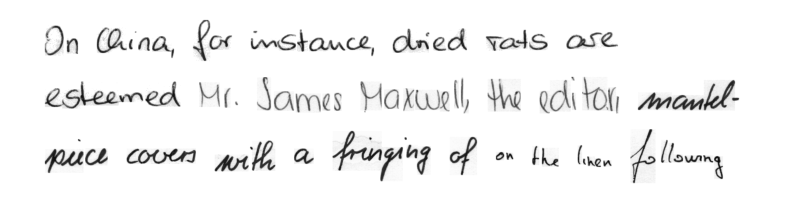 On China, for instance, dried rats are
esteemed Mr. James Maxwell, the editor, mantel-
piece covers with a fringing of on the linen following